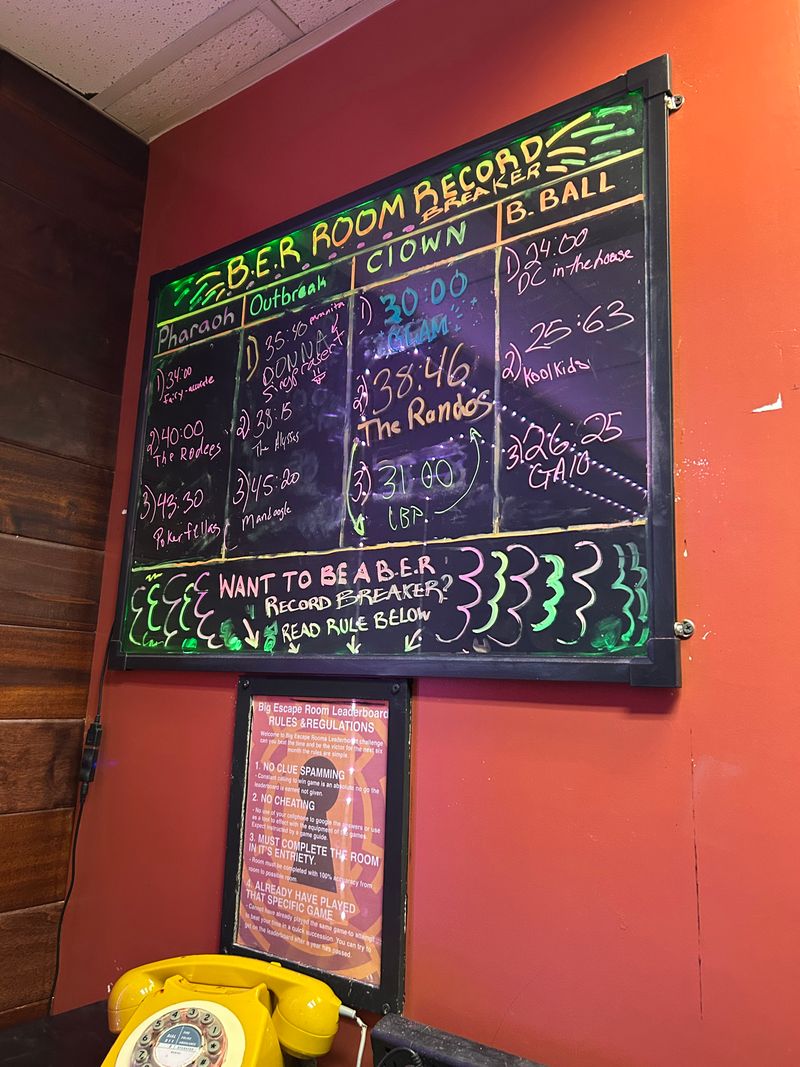 B.E.R ROOM RECORD
BREAKER
Pharaoh
1) 34:00
2) 40:00
The Rodees
3) 43:30
Pokerfellas
Outbreak
1) 35:40
DONNA
2) 38:15
The
3) 45:20
Clown
1) 30:00
GLAM
2) 38:46
The Randos
3) 31:00
LBP
B. BALL
1) 24:00
DC in the house
2) 25:63
Kool Kids
3) 26:25
WANT TO BE A B.E.R
RECORD BREAKER?
READ RULE BELOW
Big Escape Room Leaderboard
RULES &REGULATIONS
Welcome to Big Escape Rooms Leaderboard challenge
can you beat the time and be the victor for the next six
month the rules are simple.
1. NO CLUE SPAMMING
- Constant calling to win game is an absolute no go the
leaderboard is earned not given.
2. NO CHEATING
- No use of your cellphone to google the answers or use
as a tool to effect with the equipment of the games.
Expect instructed by a game guide.
3. MUST COMPLETE THE ROOM
IN IT'S ENTRIETY.
- Room must be completed with 100% accuracy from
room to possible room.
4. ALREADY HAVE PLAYED
THAT SPECIFIC GAME
- Cannot have already played the same game to attempt
to beat your time in a quick succession. You can try to
get on the leaderboard after a year has passed.